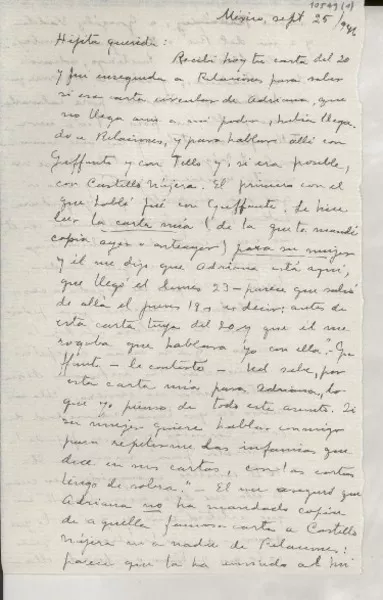 10549 (1)
México, sept 25/946
Hijita querida:
Recibí hoy tu carta del 20
y fui enseguida a Relaciones para saber
si esa carta circular de Adriana, que
no llega aún a mi poder, había llega-
do a Relaciones, y para hablar allí con
Geffunto y con Tello y, si era posible,
con Castillo Nájera. El primero con el
que hablé fué con Geffunte. Le hice
leer la carta mía (de la que te mandé
copia ayer o anteayer) para su mujer
y él me dijo que Adriana está aquí,
que llegó el lunes 23 - parece que salió
de allá el jueves 19, es decir: antes de
esta carta tuya del 20, y que él me
rogaba que hablara yo con ella. "
- le contesté - Ud sabe, por
esta carta mía para Adriana, lo
que yo pienso de todo este asunto. Si
su mujer quiere hablar conmigo
para repetirme las infamias que
dice en sus cartas, con las cartas
tengo de sobra." - El me aseguró que
Adriana no ha mandado copia
de aquella famosa carta a Castillo
Nájera ni a nadie de Relaciones:
parece que la ha enviado a mí